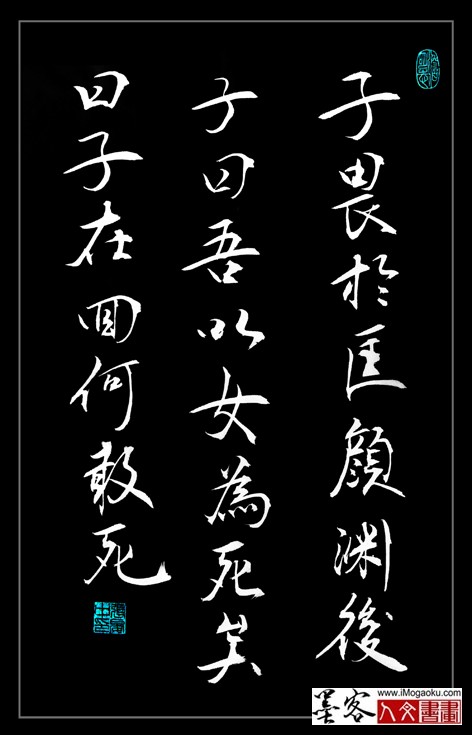 子畏於匡顏渊後
子曰吾以女為死矣
曰子在回何敢死
www.iMogaoku.com
墨客
人文書畫